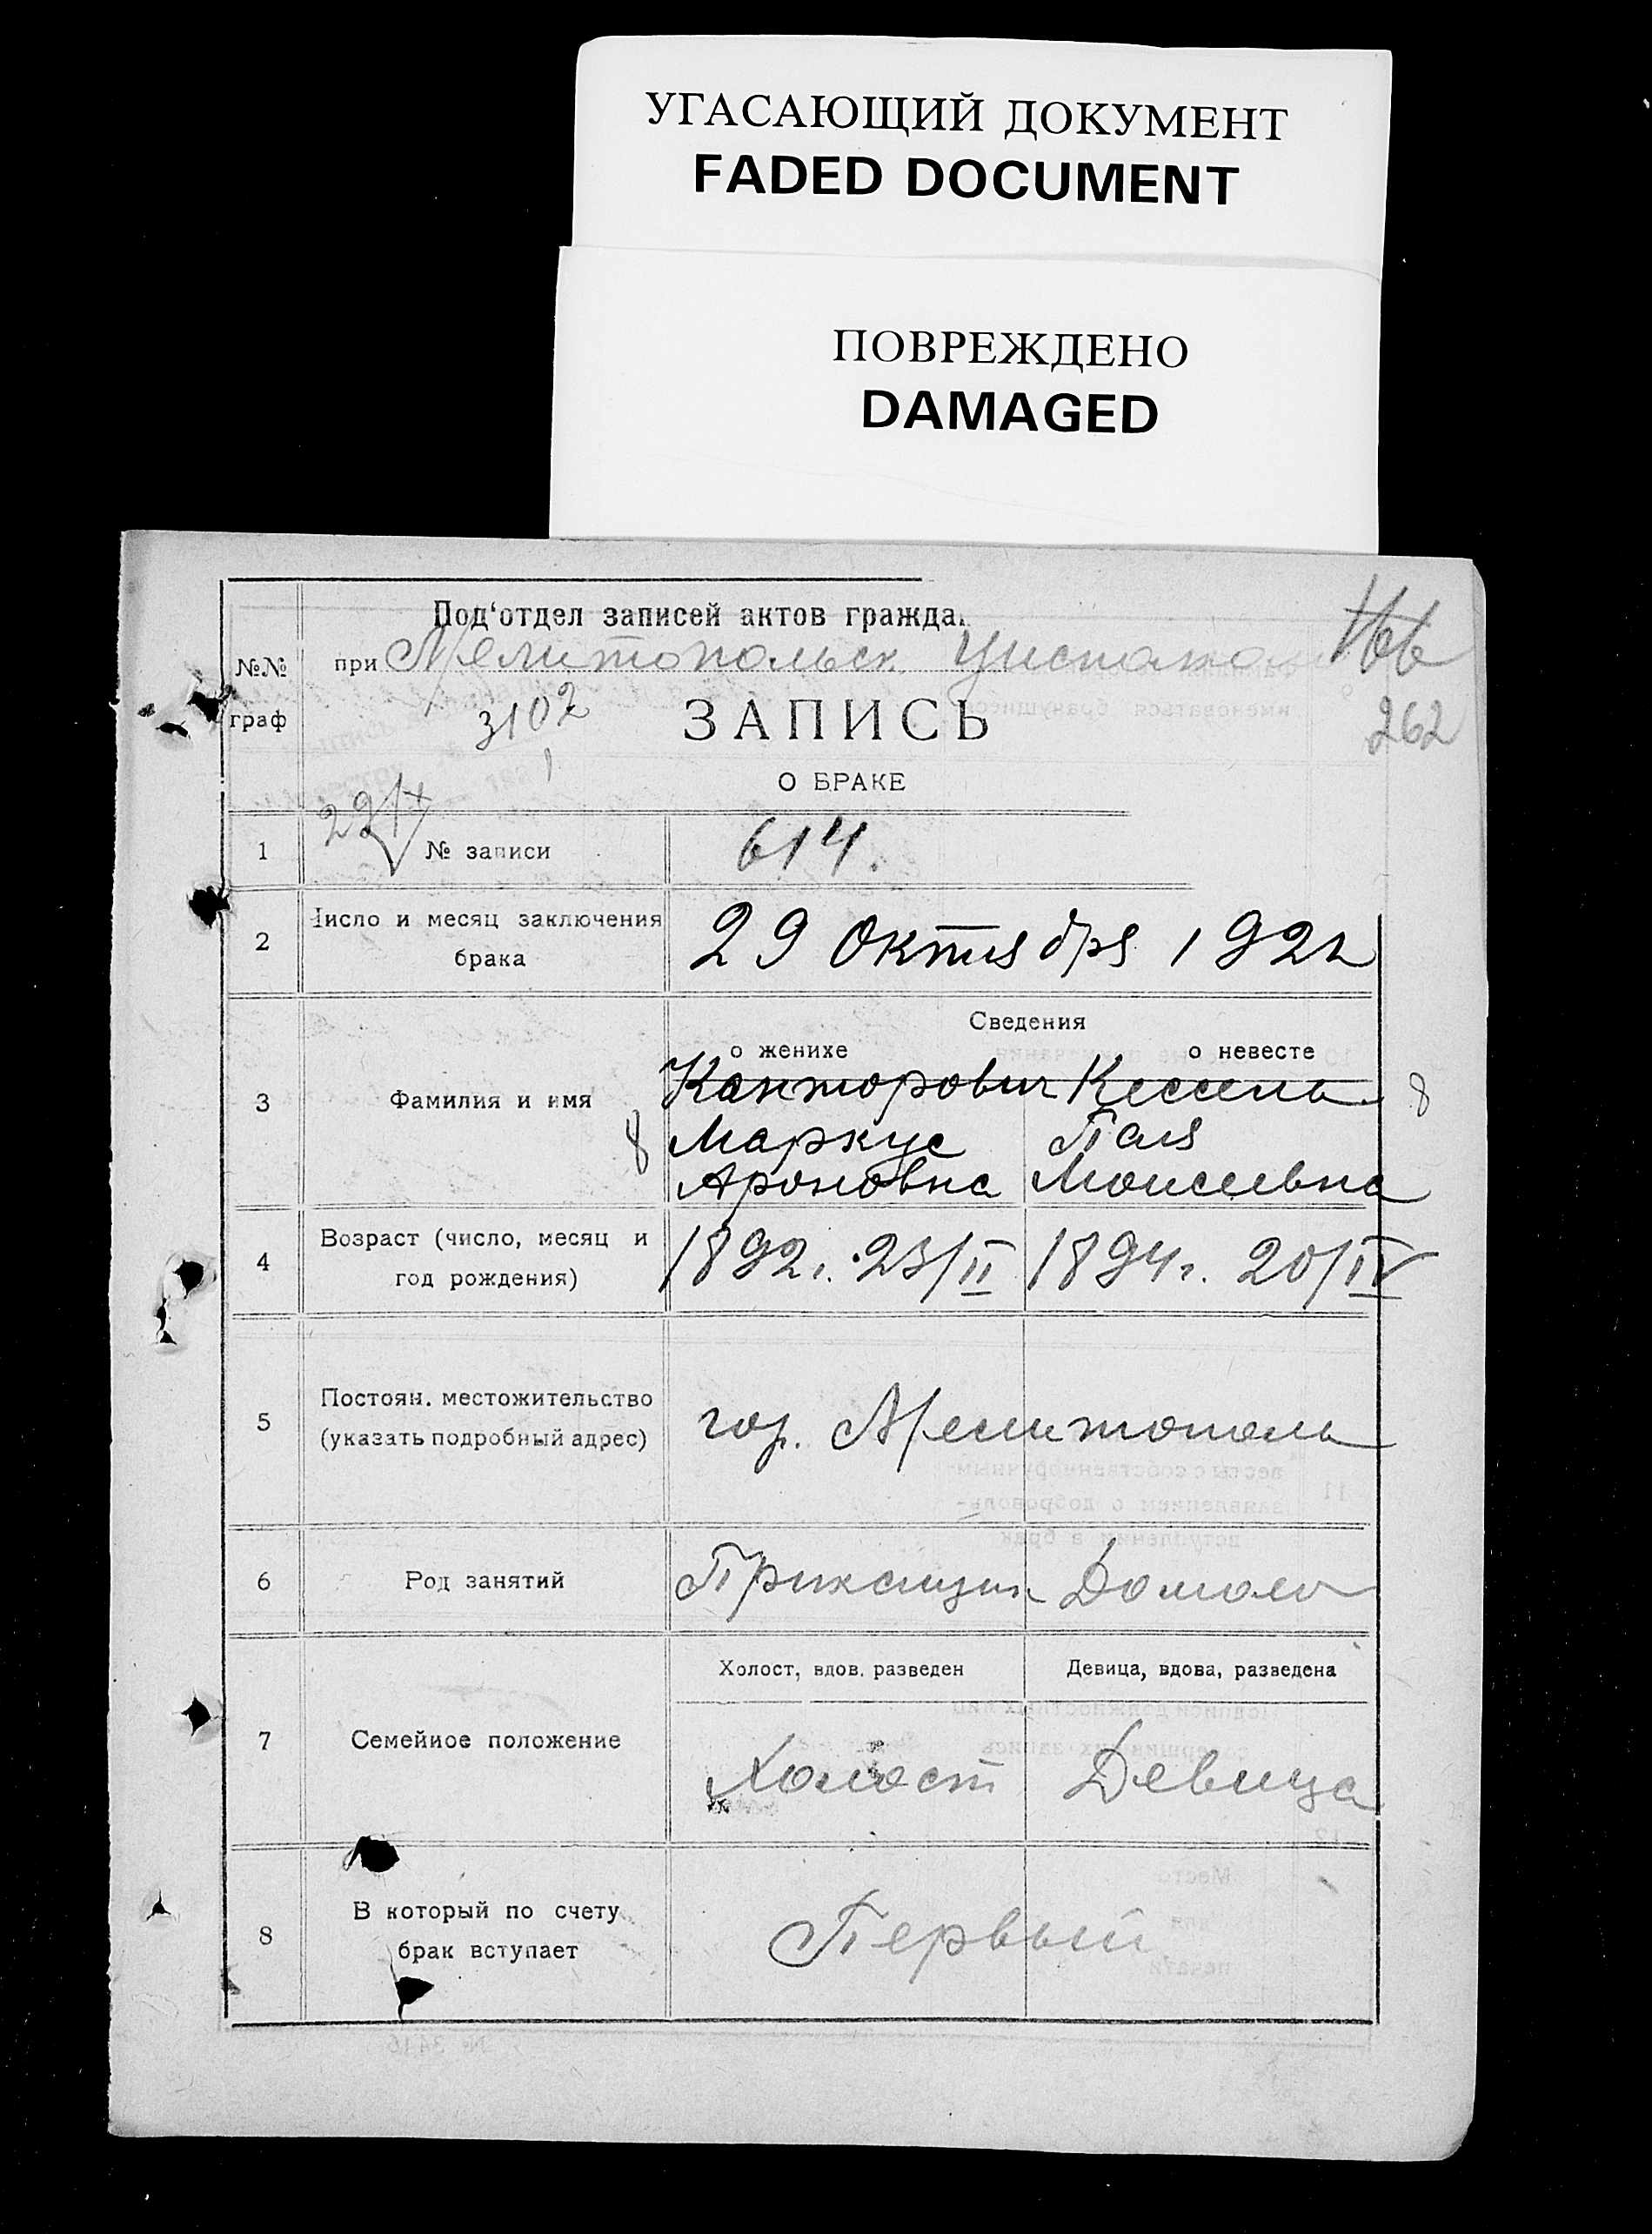 УГАСАЮЩИЙ ДОКУМЕНТ
FADED DOCUMENT
ПОВРЕЖДЕНО
DAMAGED
Под'отдел записей актов гражда
№№ граф
при Мелитопольск.
262
3102
ЗАПИСЬ
О БРАКЕ
1 № записи 614.
2 Число и месяц заключения
брака
29 Октября 192
Сведения
о женихе о невесте
3 Фамилия и имя
Канторович Кессель
Маркус Паля
Ароновна Моисеевна
8 8
4 Возраст (число, месяц и
год рождения)
1892 г. 23/II 1894 г. 20/IV
5 Постоян. местожительство
(указать подробный адрес)
гор. Мелитополь
6 Род занятий Приказчик
Холост, вдов. разведен Девица, вдова, разведена
7 Семейное положение
Холост Девица
8 В который по счету
брак вступает
Первый